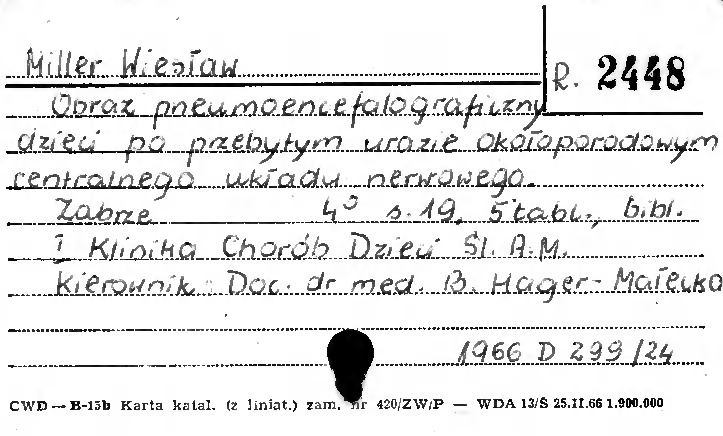 Miller Wiesław
R. 2448
Obraz pneumoencefalograficzny
dzieci po przebytym urazie okołoporodowym
centralnego układu nerwowego.
Zabrze 4° s. 19, 5 tabl., bibl.
I Klinika Chorób Dzieci Śl. A.M.
Kierownik: Doc. dr med. B. Hager-Małecka
1966 D 299/24
CWD — B-15b Karta katal. (z liniat.) zam. nr 420/ZW/P — WDA 13/S 25.II.66 1.900.000